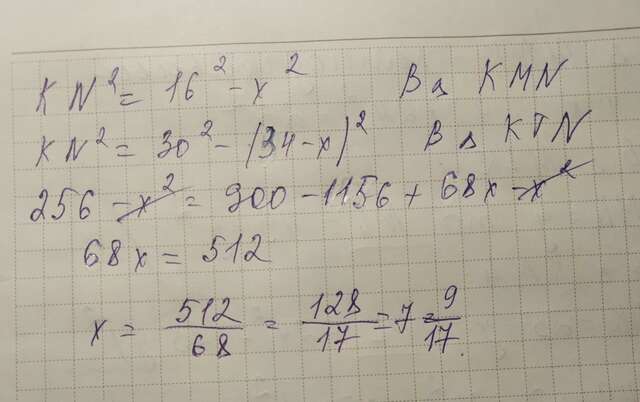 KN² = 16² - x² В △ KMN
KN² = 30² - (34 - x)² В △ KTN
256 - x² = 900 - 1156 + 68x - x²
68x = 512
x = 512/68 = 128/17 = 7 = 9/17.